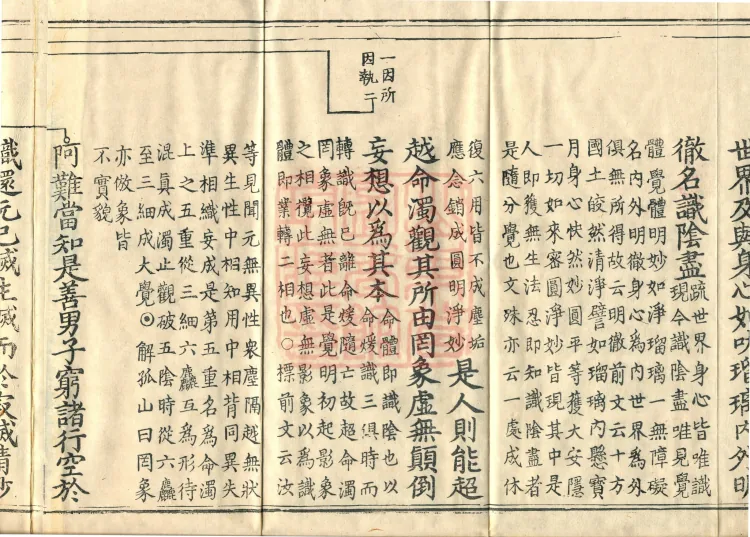 世界及與身心如吠瑠璃內外明
徹名識陰盡
疏世界身心皆唯識
現今識陰盡唯見覺
體覺體明妙如淨瑠璃一無障礙
名內外明徹身心為內世界為外
俱無所得故云明徹前文云十方
國土皎然清淨譬如瑠璃內懸寶
月身心快然妙圓平等獲大安隱
一切如來密圓淨妙皆現其中是
人即獲無生法忍即知識陰盡者
是隨分覺也文殊亦云一處成休
復六用皆不成塵垢
應念銷成圓明淨妙
是人則能超
越命濁觀其所由罔象虛無顛倒
妄想以為其本
命體即識陰也以
命煖識三俱時而
轉識既已離命煖隨亡故超命濁
罔象虛無者此是覺明初起影象
之相攬此妄想虛無影象以為識
體即業轉二相也○標前文云汝
等見聞元無異性衆塵隔越無狀
異生性中相知用中相背同異失
準相織妄成是第五重名為命濁
上之五重從三細六麤互為形待
混真成濁止觀破五陰時從六麤
至三細成大覺◎解孤山曰罔象
亦倣象皆
不實貌
一因所
因執二
阿難當知是善男子窮諸行空於
識還元已滅生滅而於寂滅精妙